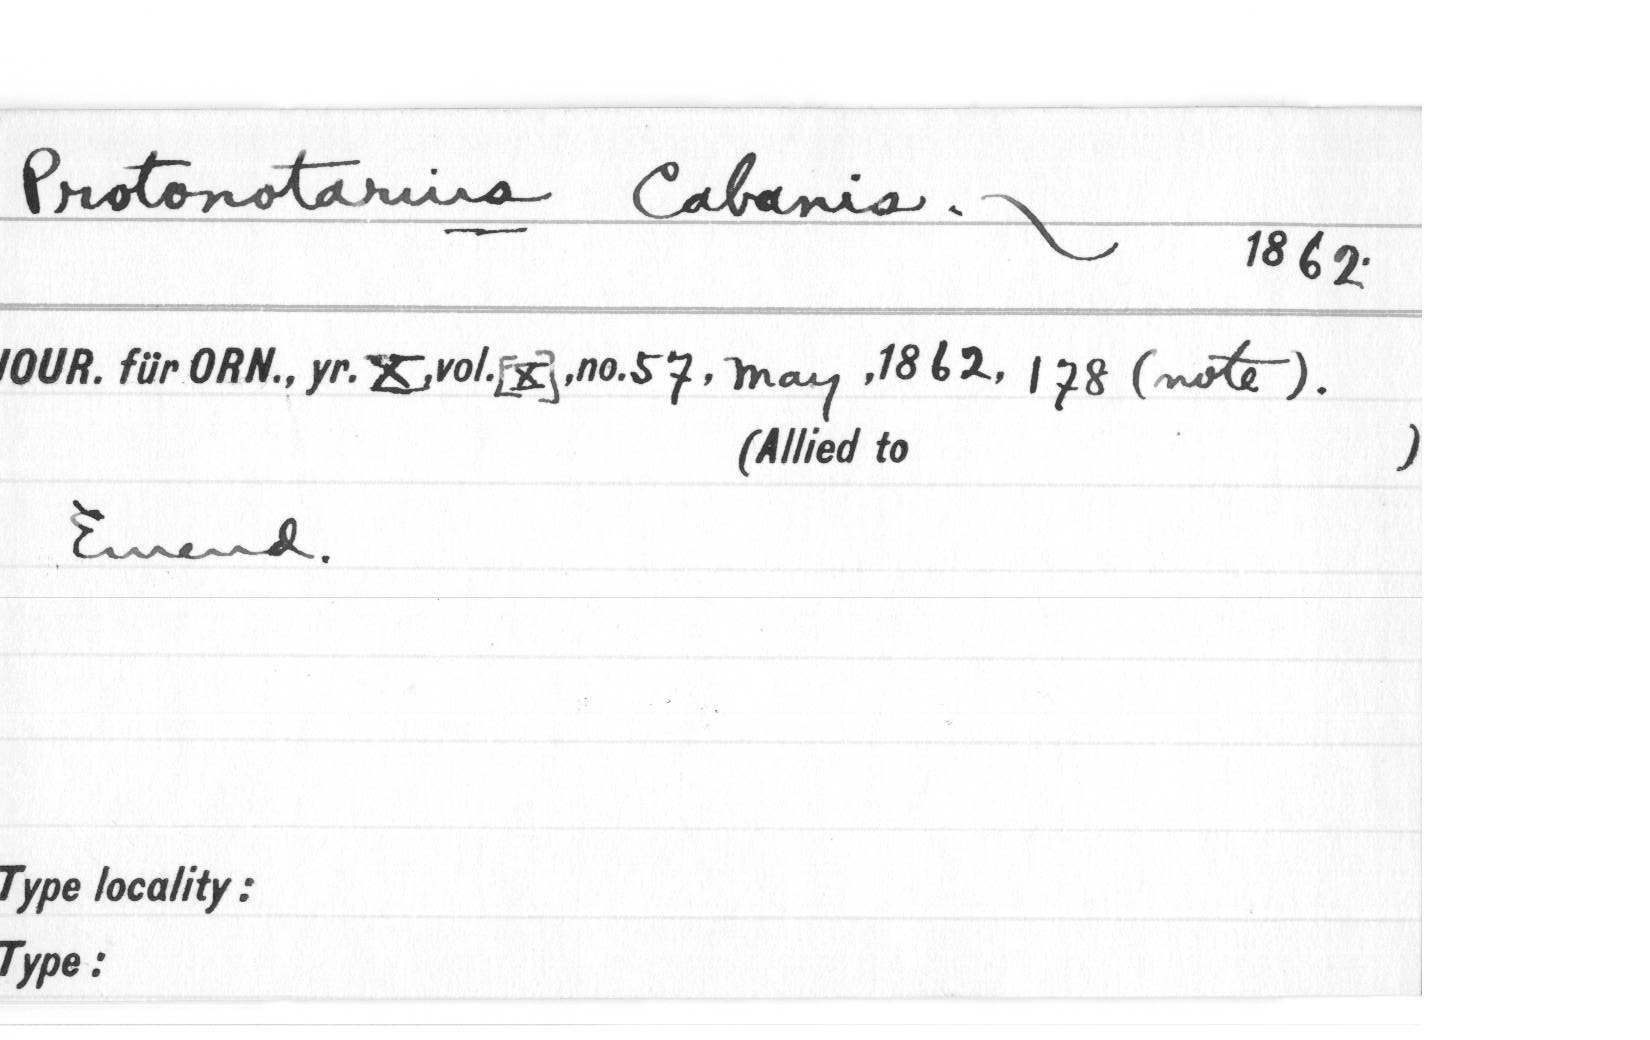 Protonotarius Cabanis.
1862.
JOUR. für ORN., yr. X, vol. [X], no. 57, May, 1862, 178 (note).
(Allied to )
Emend.
Type locality:
Type: